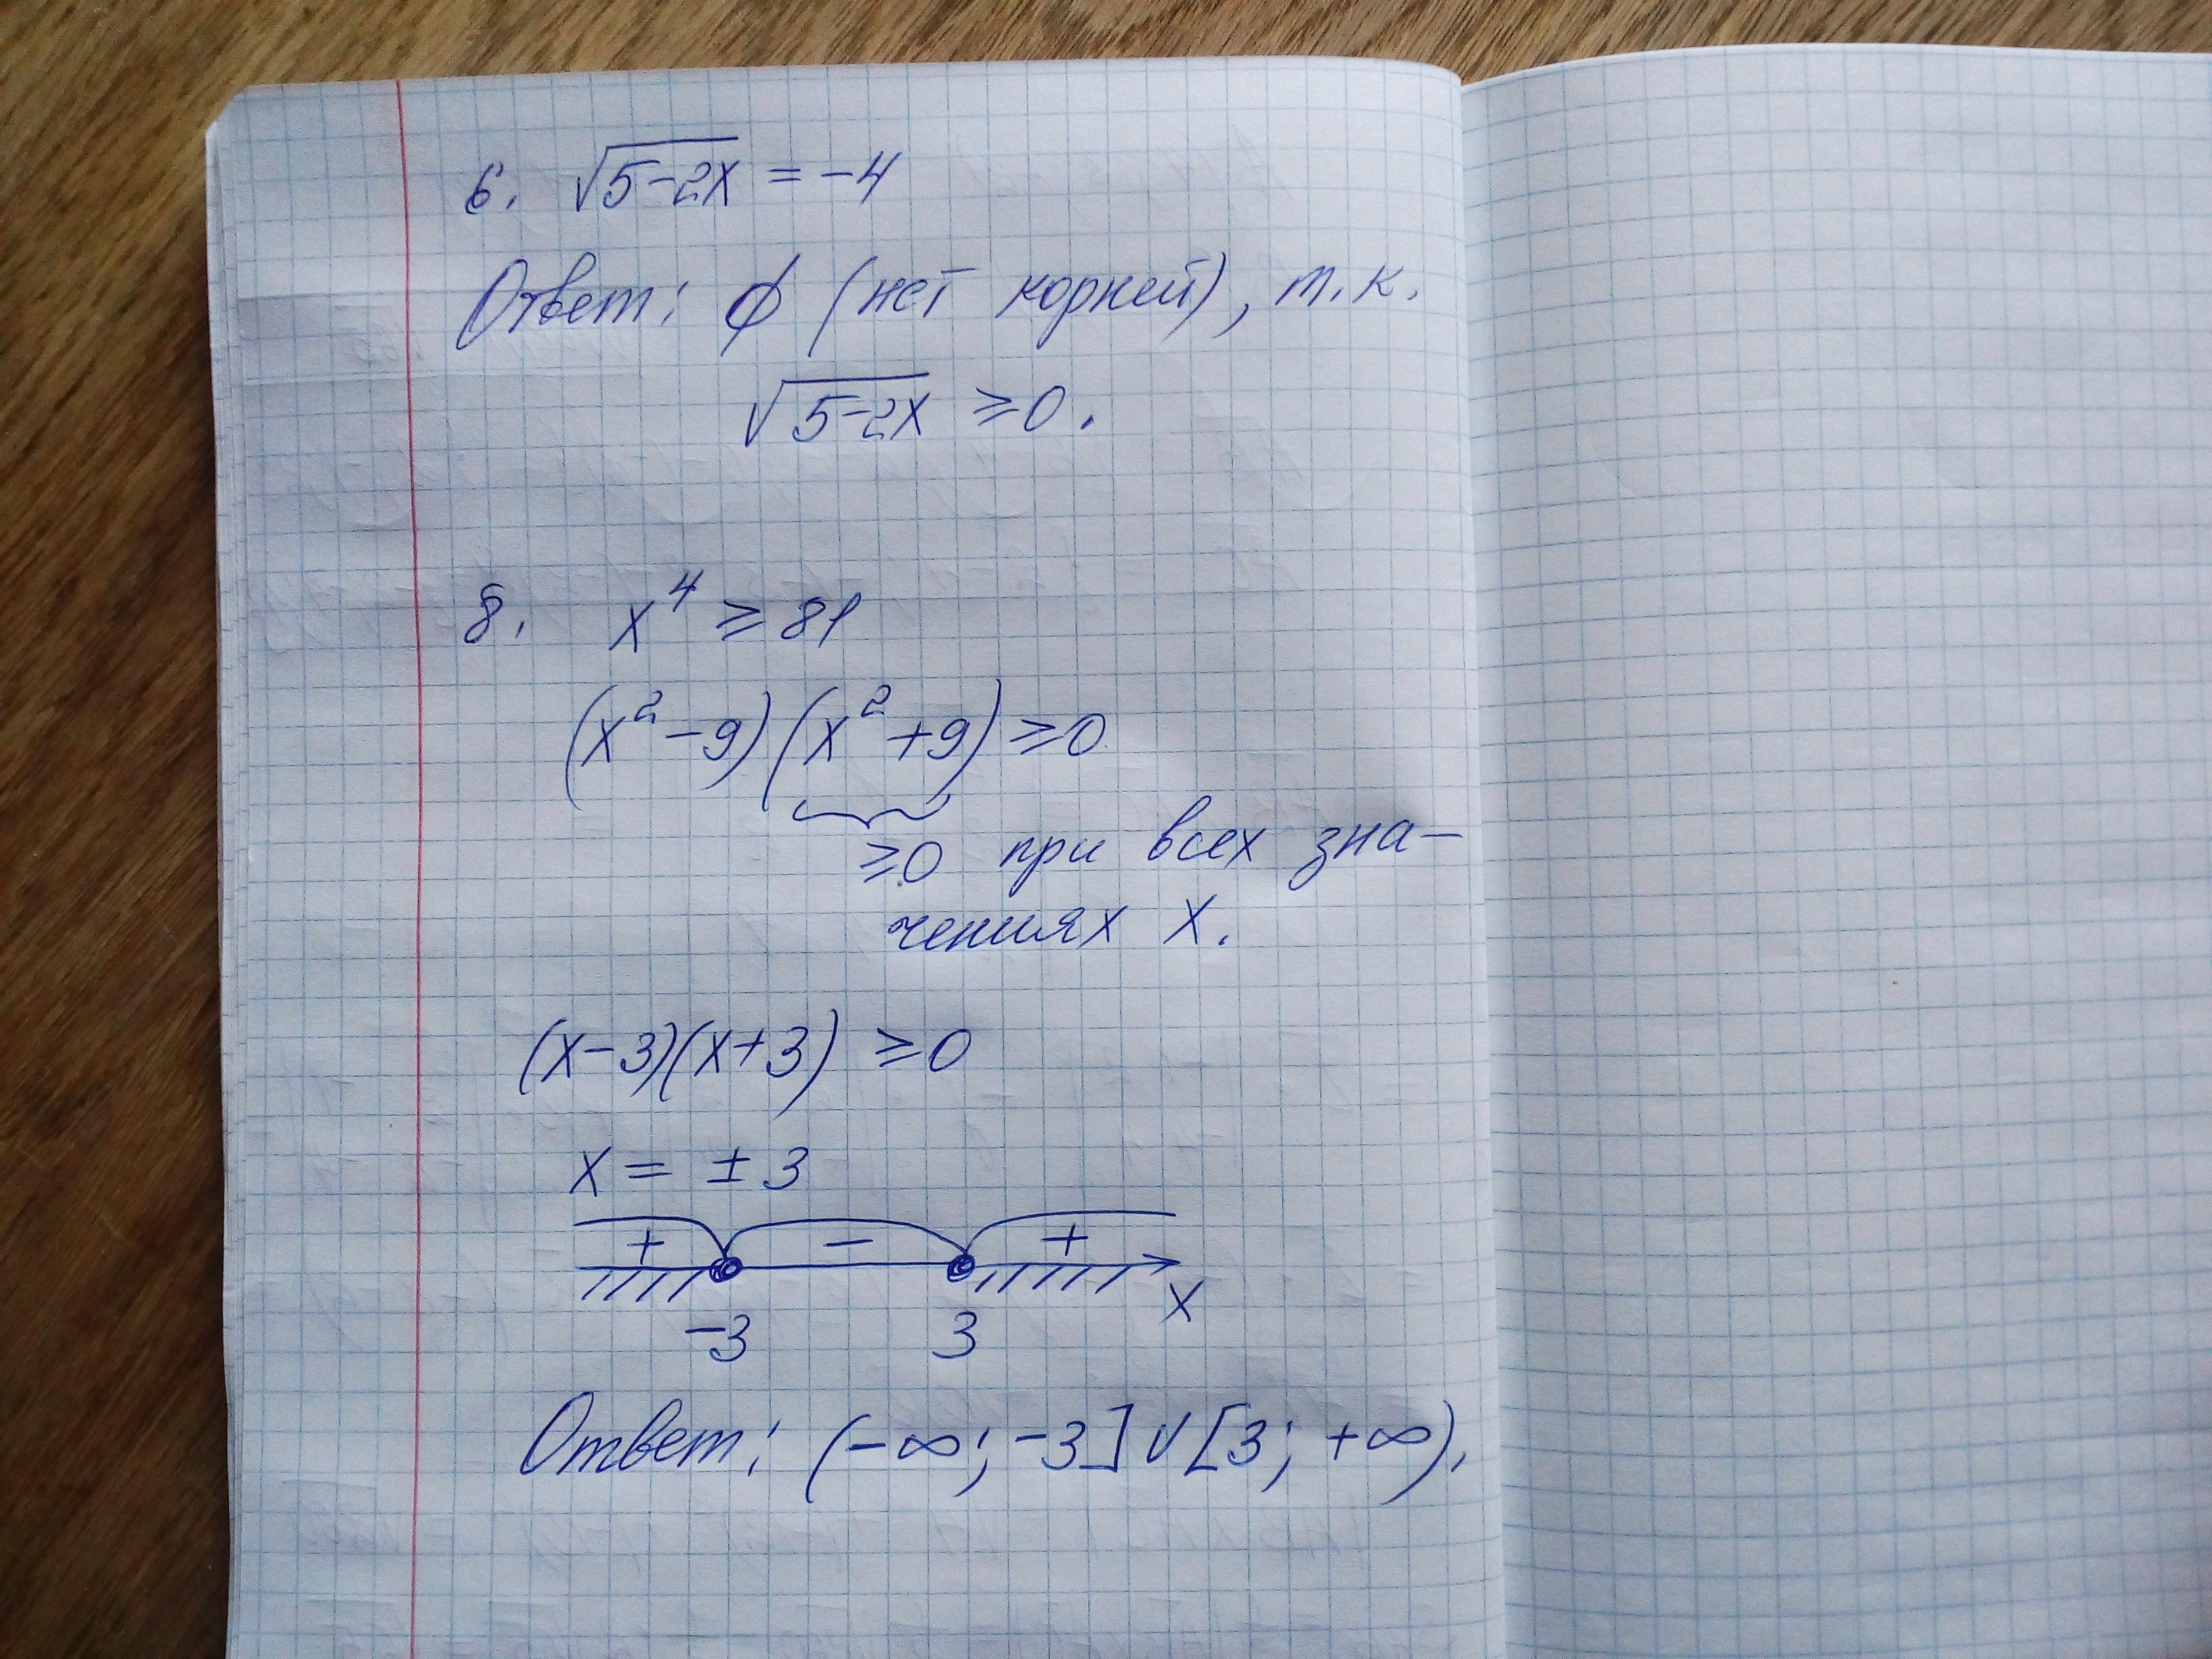 6. √5-2x = -4
Ответ: ∅ (нет корней), т.к.
√5-2x ≥0.
8. x⁴ ≥ 81
(x²-9)(x²+9)≥0
≥0 при всех зна-
чениях x.
(x-3)(x+3) ≥0
x = ±3
+ - +
-3 3 x
Ответ: (-∞; -3]∪[3; +∞).